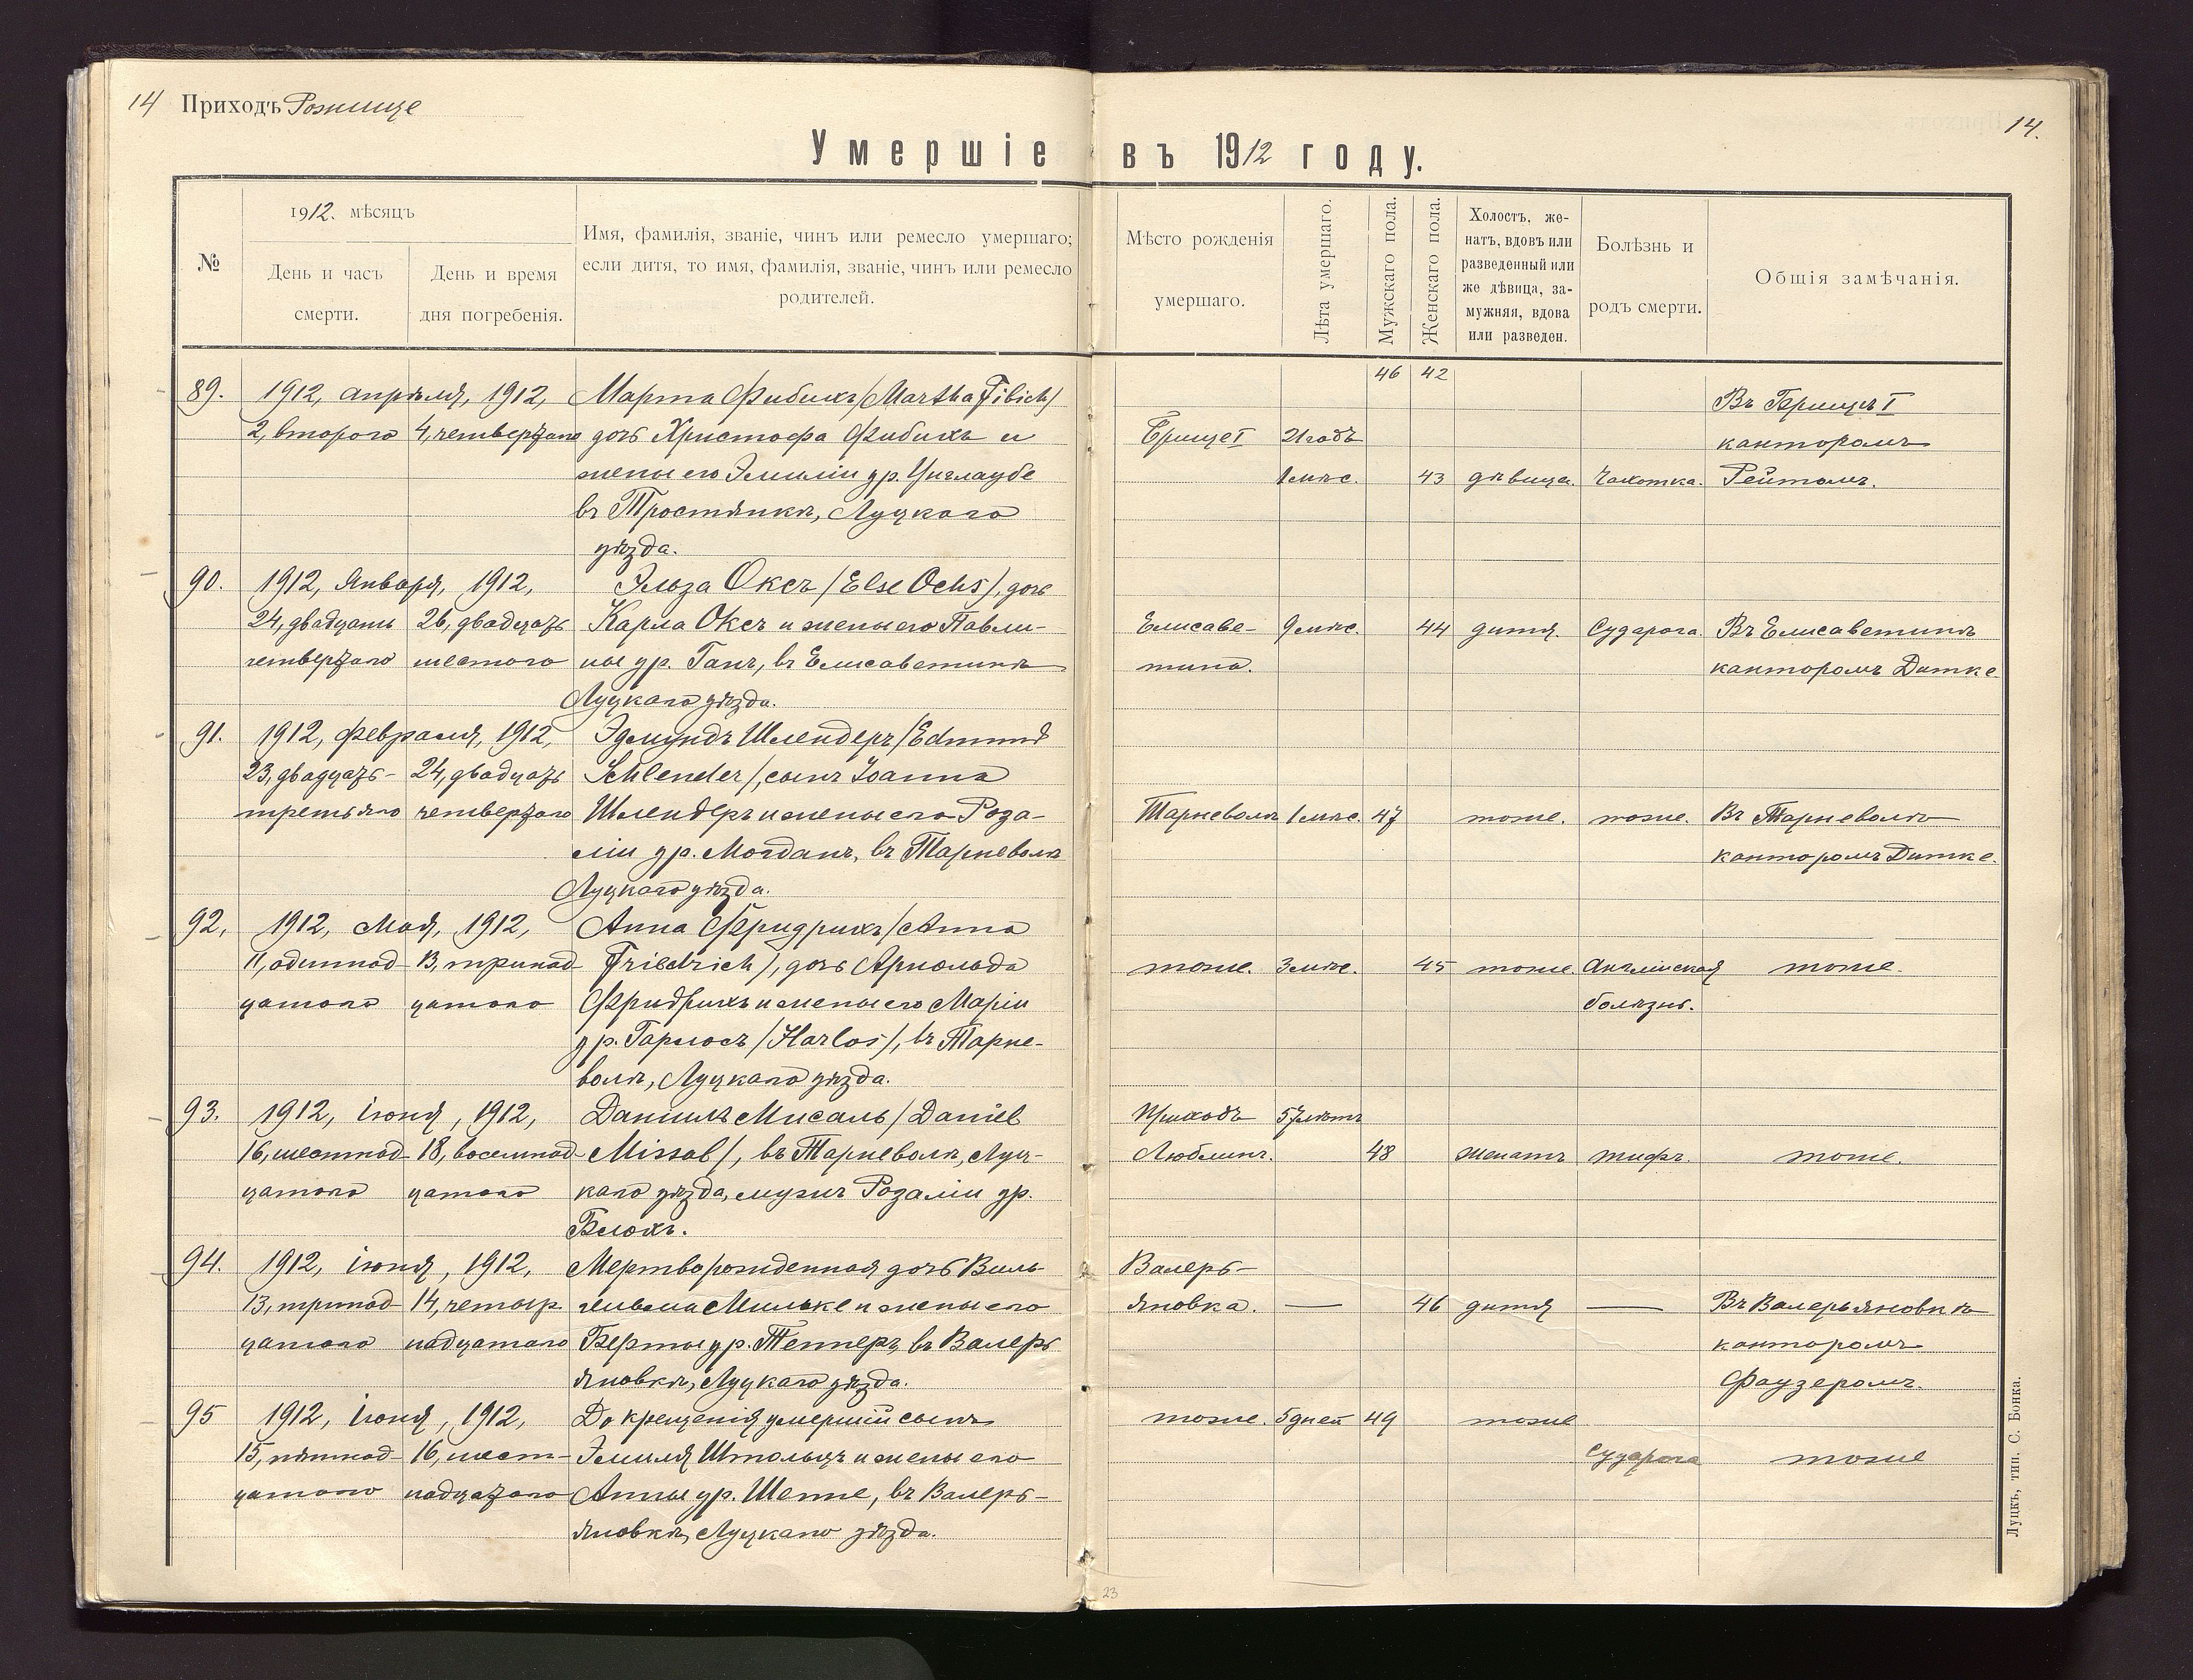 14 Приходъ Рожище
14.
Умершіе въ 1912 году.
№
1912. мѣсяцъ
День и часъ смерти.
День и время дня погребенія.
Имя, фамилія, званіе, чинъ или ремесло умершаго;
если дитя, то имя, фамилія, званіе, чинъ или ремесло
родителей.
Мѣсто рожденія
умершаго.
Лѣта умершаго.
Мужскаго пола.
Женскаго пола.
Холостъ, же-
натъ, вдовъ или
разведенный или
же дѣвица, за-
мужняя, вдова
или разведен.
Болѣзнь и
родъ смерти.
Общія замѣчанія.
46 42
89. 1912, апрѣля, 1912, Марта Фибихъ /Martha Fibich/ Въ Брищѣ I
2, второго 4, четвертаго дочь Христофа Фибихъ и Брище I 21 годъ канторомъ
жены его Эмиліи ур. Циглаубе 1 мѣс. 43 дѣвица. Чахотка. Рейтомъ.
въ Тростянкѣ, Луцкаго
уѣзда.
90. 1912, Января, 1912, Эльза Оксъ /Else Ochs/, дочь
24, двадцать 26, двадцать Карла Оксъ и жены его Павли- Елисаве- 9 мѣс. 44 дитя. Судорога. Въ Елисаветинѣ
четвертаго шестого ны ур. Ганъ, въ Елисаветинѣ тинъ. канторомъ Дитке
Луцкаго уѣзда.
91. 1912, февраля, 1912, Эдмундъ Шлендеръ /Edmund
23, двадцать- 24, двадцать Schlender/, сынъ Іоанна
третьяго четвертаго Шлендеръ и жены его Роза- Тарневоля 1 мѣс. 47 тоже. тоже. Въ Тарневолѣ
ліи ур. Морданъ, въ Тарневолѣ канторомъ Дитке.
Луцкаго уѣзда.
92, 1912, Мая, 1912, Анна Фридрихъ /Anna
11, одиннад- 13, тринад- Friedrich/, дочь Арнольда тоже. 3 мѣс. 45 тоже Англійская тоже.
цатого цатого Фридрихъ и жены его Маріи болѣзнь.
ур. Гарлосъ /Harlos/, въ Тарне-
волѣ, Луцкаго уѣзда.
93. 1912, іюня, 1912, Даніилъ Мисаль /Daniel Приходъ 57 лѣтъ
16, шестнад- 18, восемнад- Missal/, въ Тарневолѣ, Луц- Люблинъ. 48 женатъ тифъ. тоже.
цатого цатого каго уѣзда, мужъ Розаліи ур.
Блохъ.
94. 1912, іюня, 1912, Мертворожденная дочь Виль- Валерь-
13, тринад- 14, четыр- гельма Мильке и жены его яновка. — 46 дитя — Въ Валерьяновкѣ
цатого надцатаго Берты ур. Теппер, въ Валерь канторомъ
яновкѣ, Луцкаго уѣзда. Фаузеромъ.
95 1912, Іюня, 1912, До крещенія умершій сынъ тоже. 5 дней 49 тоже
15, пятнад- 16, шест- Эмиля Штольцъ и жены его Судорога тоже
цатого надцатаго Анны ур. Шепне, въ Валерь-
яновкѣ, Луцкаго уѣзда.
Луцкъ, тип. С. Бонка.
23